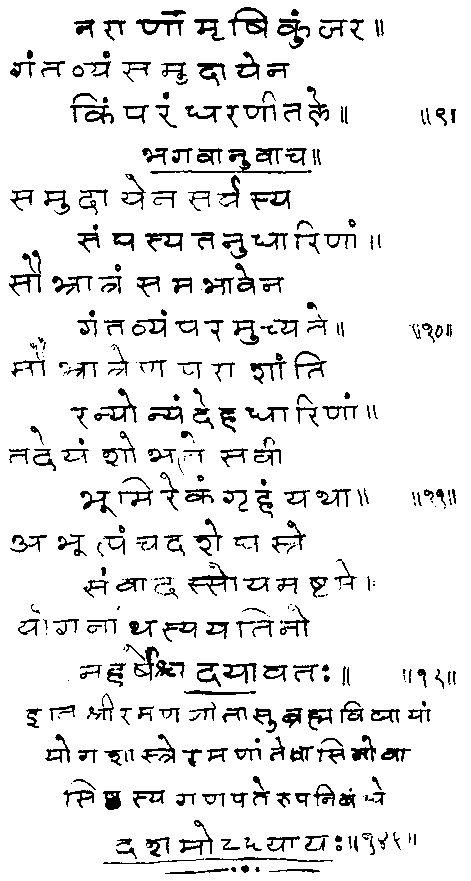 नराणामृषिकुंजर॥
गंतव्यं समुदायेन
किं परं धरणीतले॥ ॥९॥
भगवानुवाच॥
समुदायेन सर्वस्य
संघस्य तनुधारिणां॥
सौभ्रात्रं समभावेन
गंतव्यं परमुच्यते॥ ॥१०॥
सौभ्रात्रेण परा शांति
रन्योन्यं देहधारिणां॥
तदेयं शोभते सर्वा
भूमिरेकं गृहं यथा॥ ॥११॥
अभूत्पंचदशे घस्रे
संवादस्सोयमष्टमे।
योगनाथस्य यतिनो
महर्षेश्च दयावतः॥ ॥१२॥
इति श्रीरमणगीतासु ब्रह्मविद्यायां
योगशास्त्रे रमणांतेवासिनो वा
सिष्ठस्य गणपतेरुपनिबंधे
दशमोऽध्यायः॥१४६॥